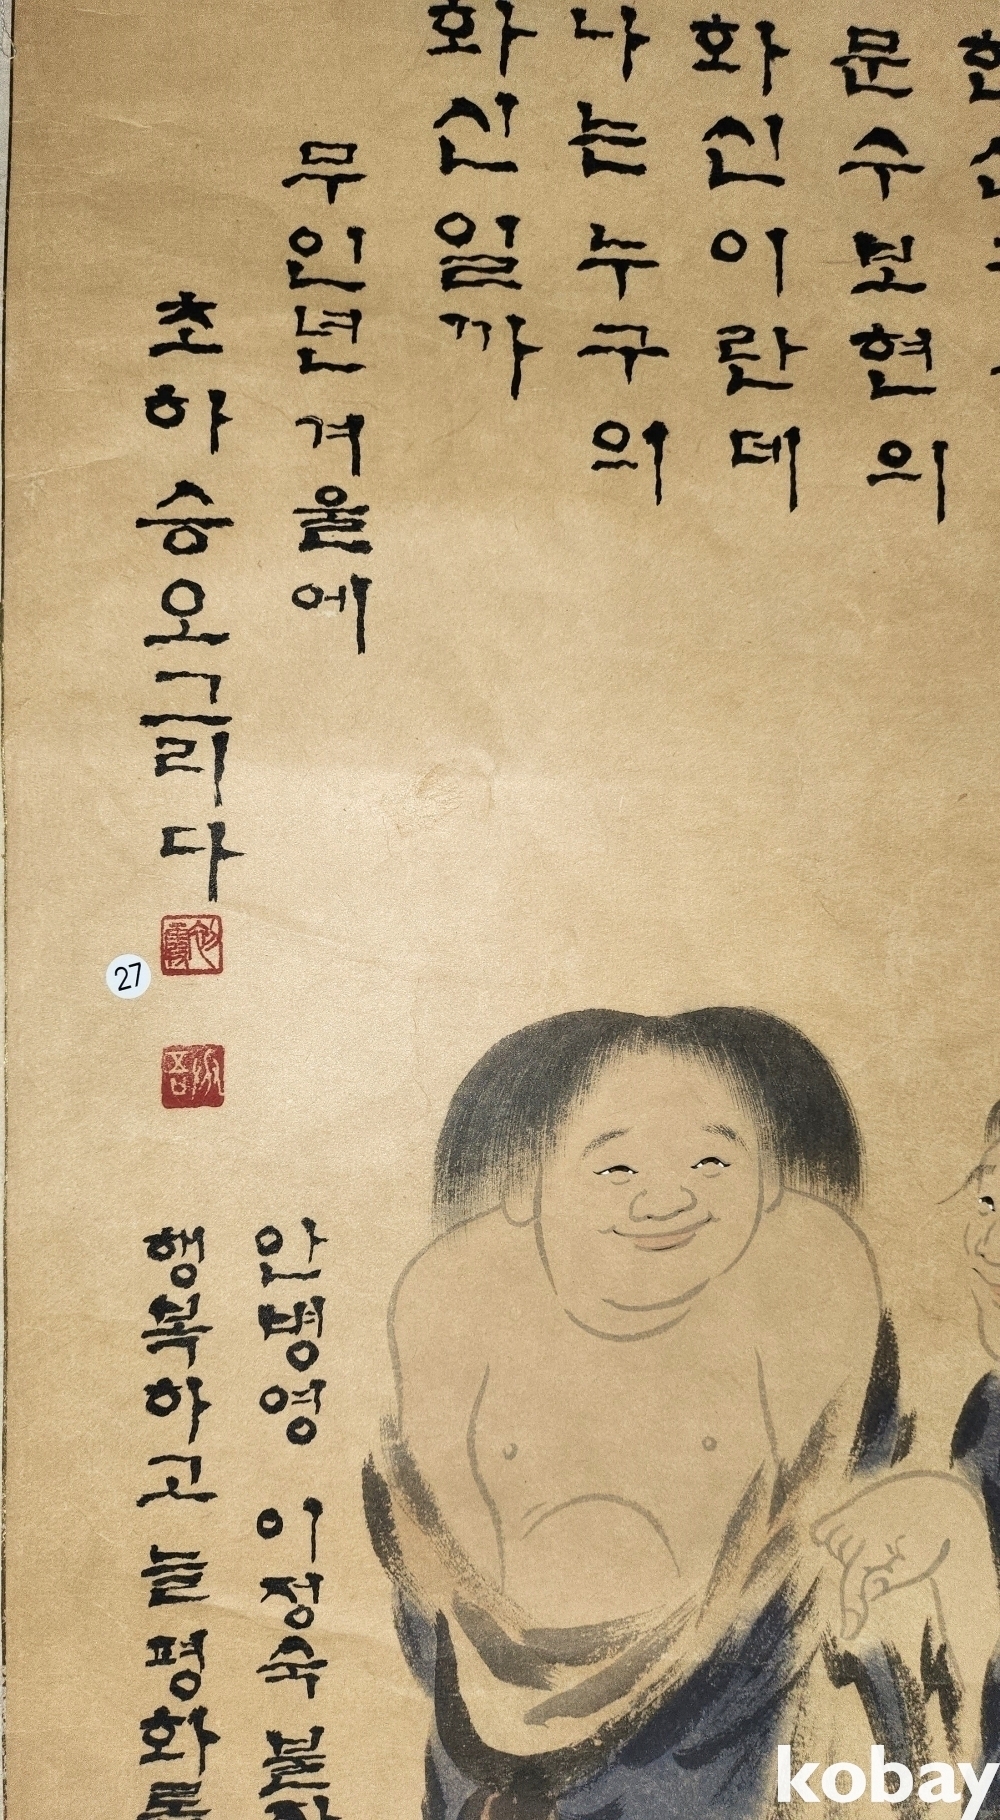 문수보현의
화신이란데
나는누구의
화신일까
무인년 겨울에
초하승오그리다
안병영 이정숙 불자
행복하고 늘 평화로
27
kobay